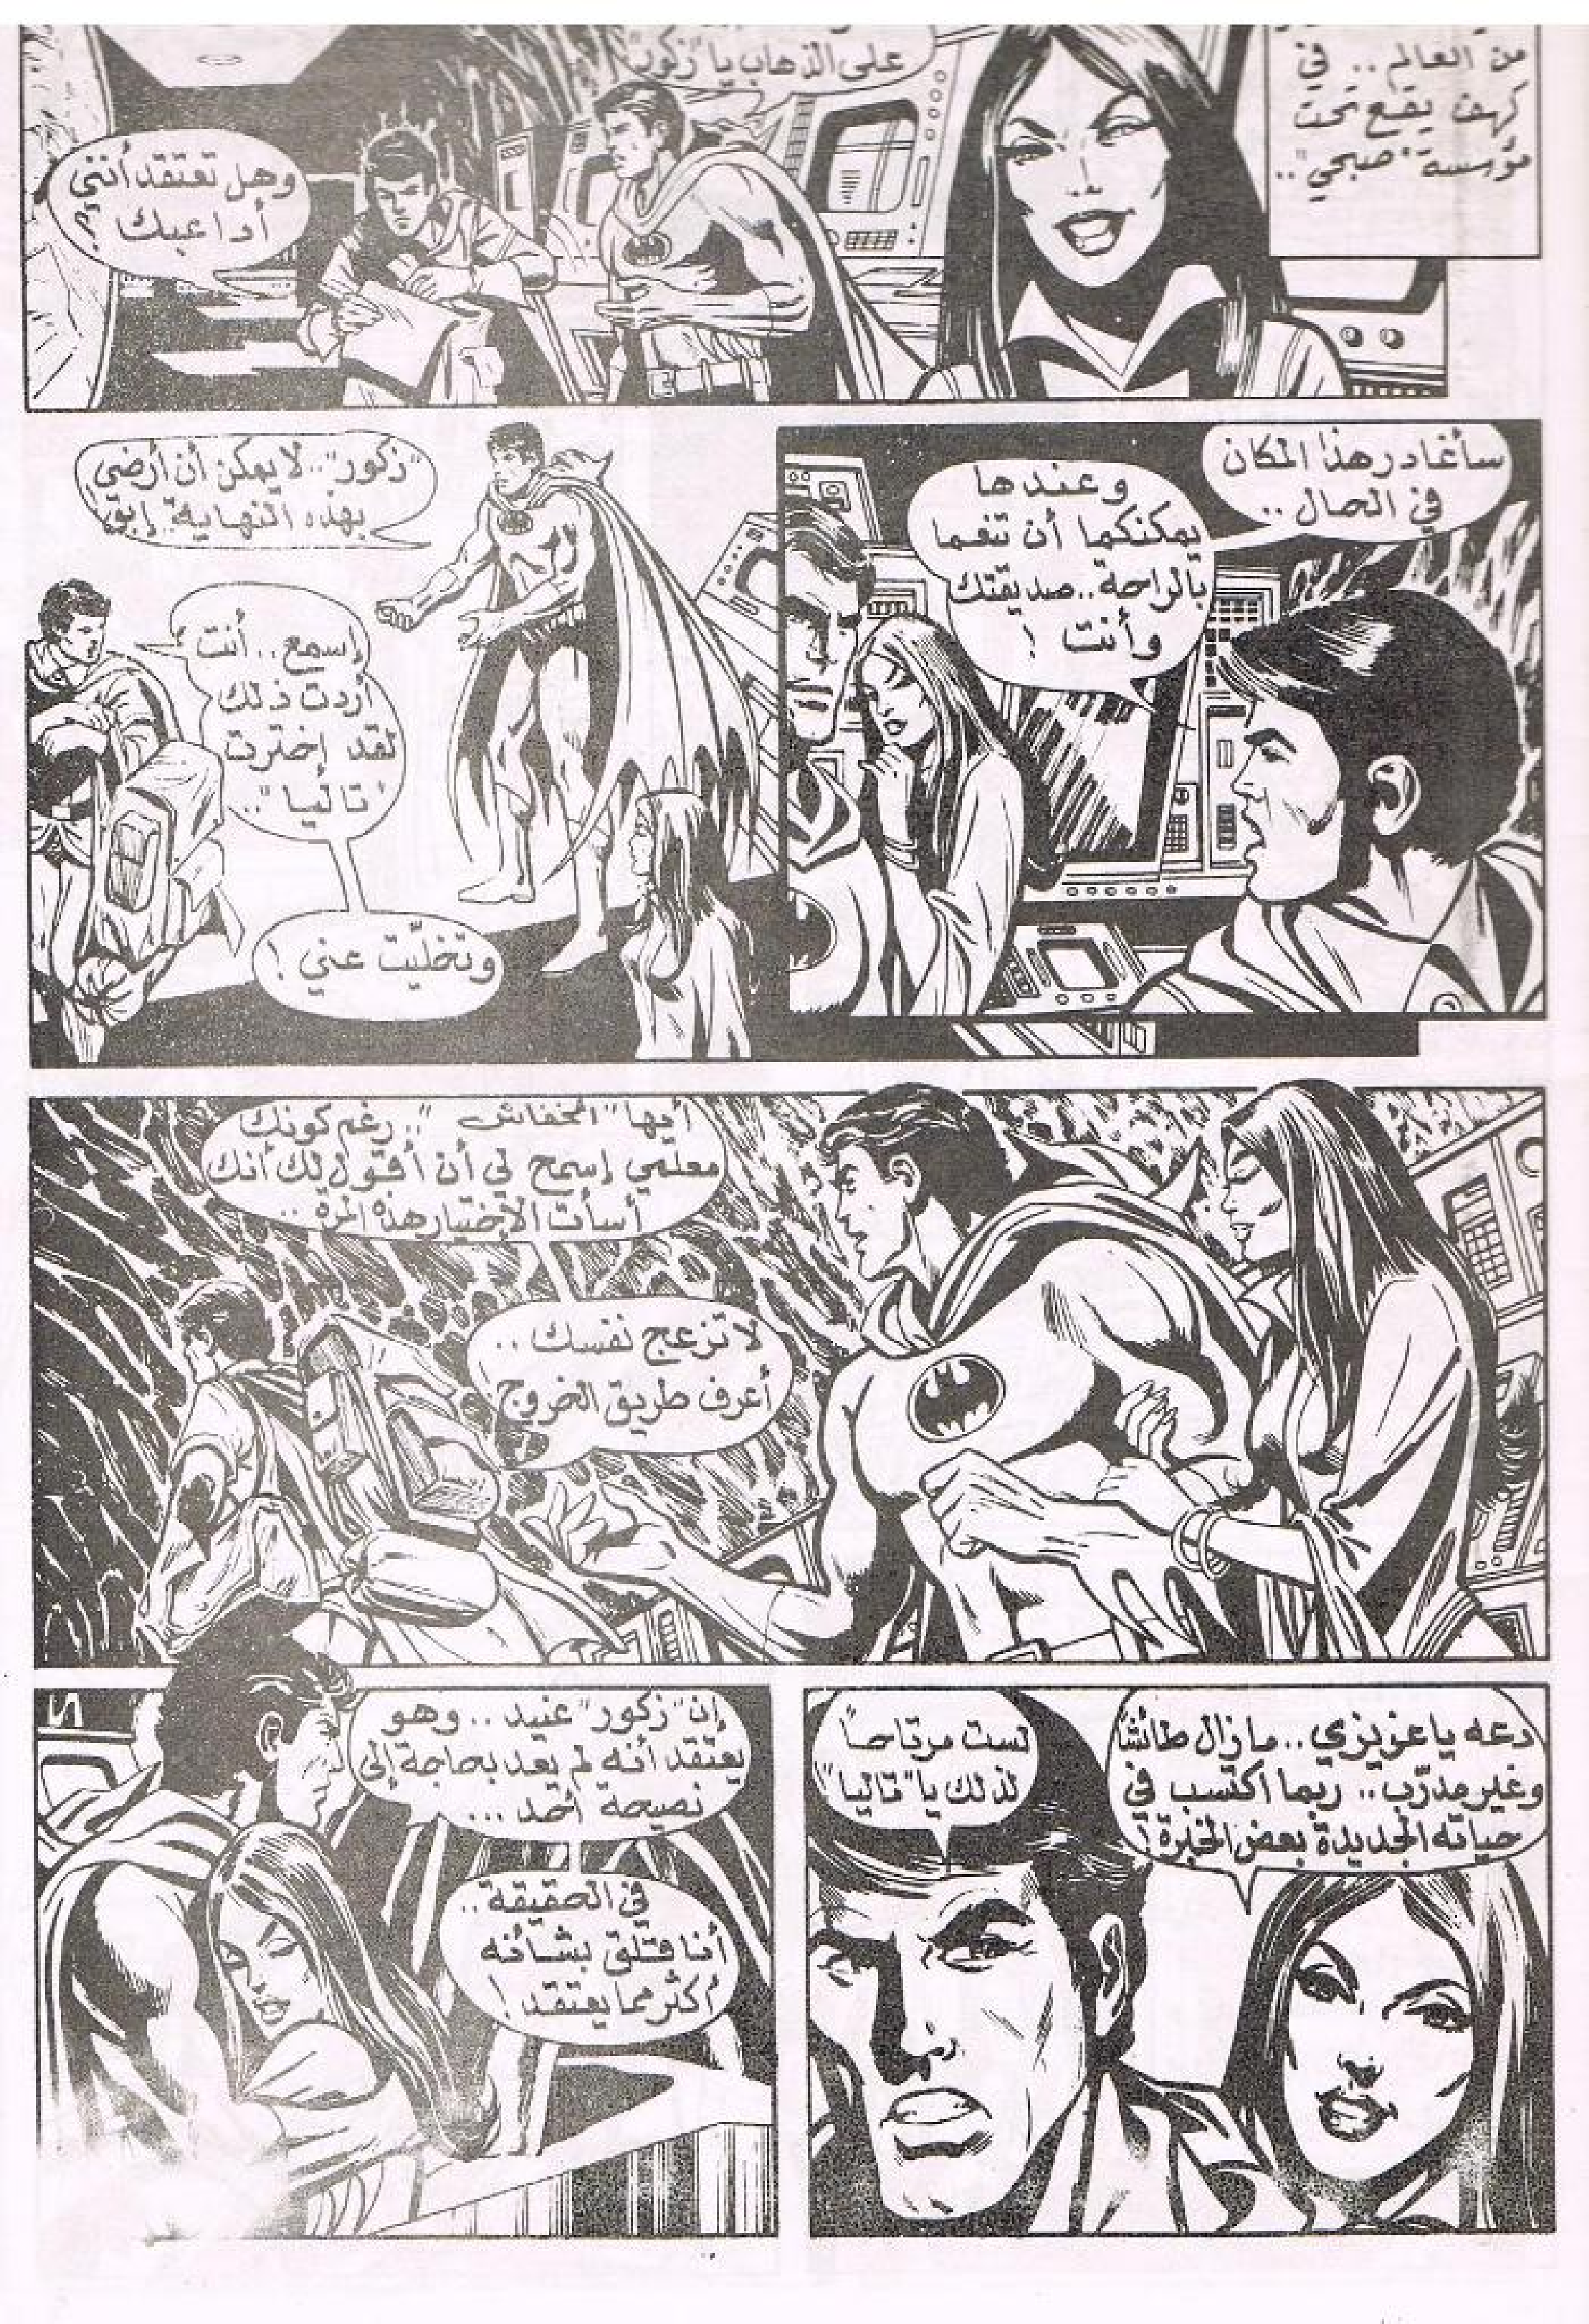 من العالم .. في
كهف يقع تحت
مؤسسة "صبحي" ..
على الذهاب يا "زكور"
وهل تعتقد أنني
أداعبك؟
سأغادر هذا المكان
في الحال ..
وعندها
يمكنكما أن تنعما
بالراحة .. صديقتك
وأنت !
"زكور" .. لا يمكن أن أرضى
بهذه النهاية. إبق!
إسمع .. أنت
أردت ذلك
لقد إخترت
"تاليا" ..
وتخلّيت عني !
أيها "الخفاش" .. رغم كونك
معلمي إسمح لي أن أقول لك أنك
أسأت الإختيار هذه المرة ..
لا تزعج نفسك ..
أعرف طريق الخروج
دعه يا عزيزي .. ما زال طائشاً
وغير مدرّب .. ربما اكتسب في
حياته الجديدة بعض الخبرة !
لست مرتاحاً
لذلك يا "تاليا"
إن "زكور" عنيد .. وهو
يعتقد أنه لم يعد بحاجة إلى
نصيحة أحد ...
في الحقيقة ..
أنا قلق بشأنه
أكثر مما يعتقد !